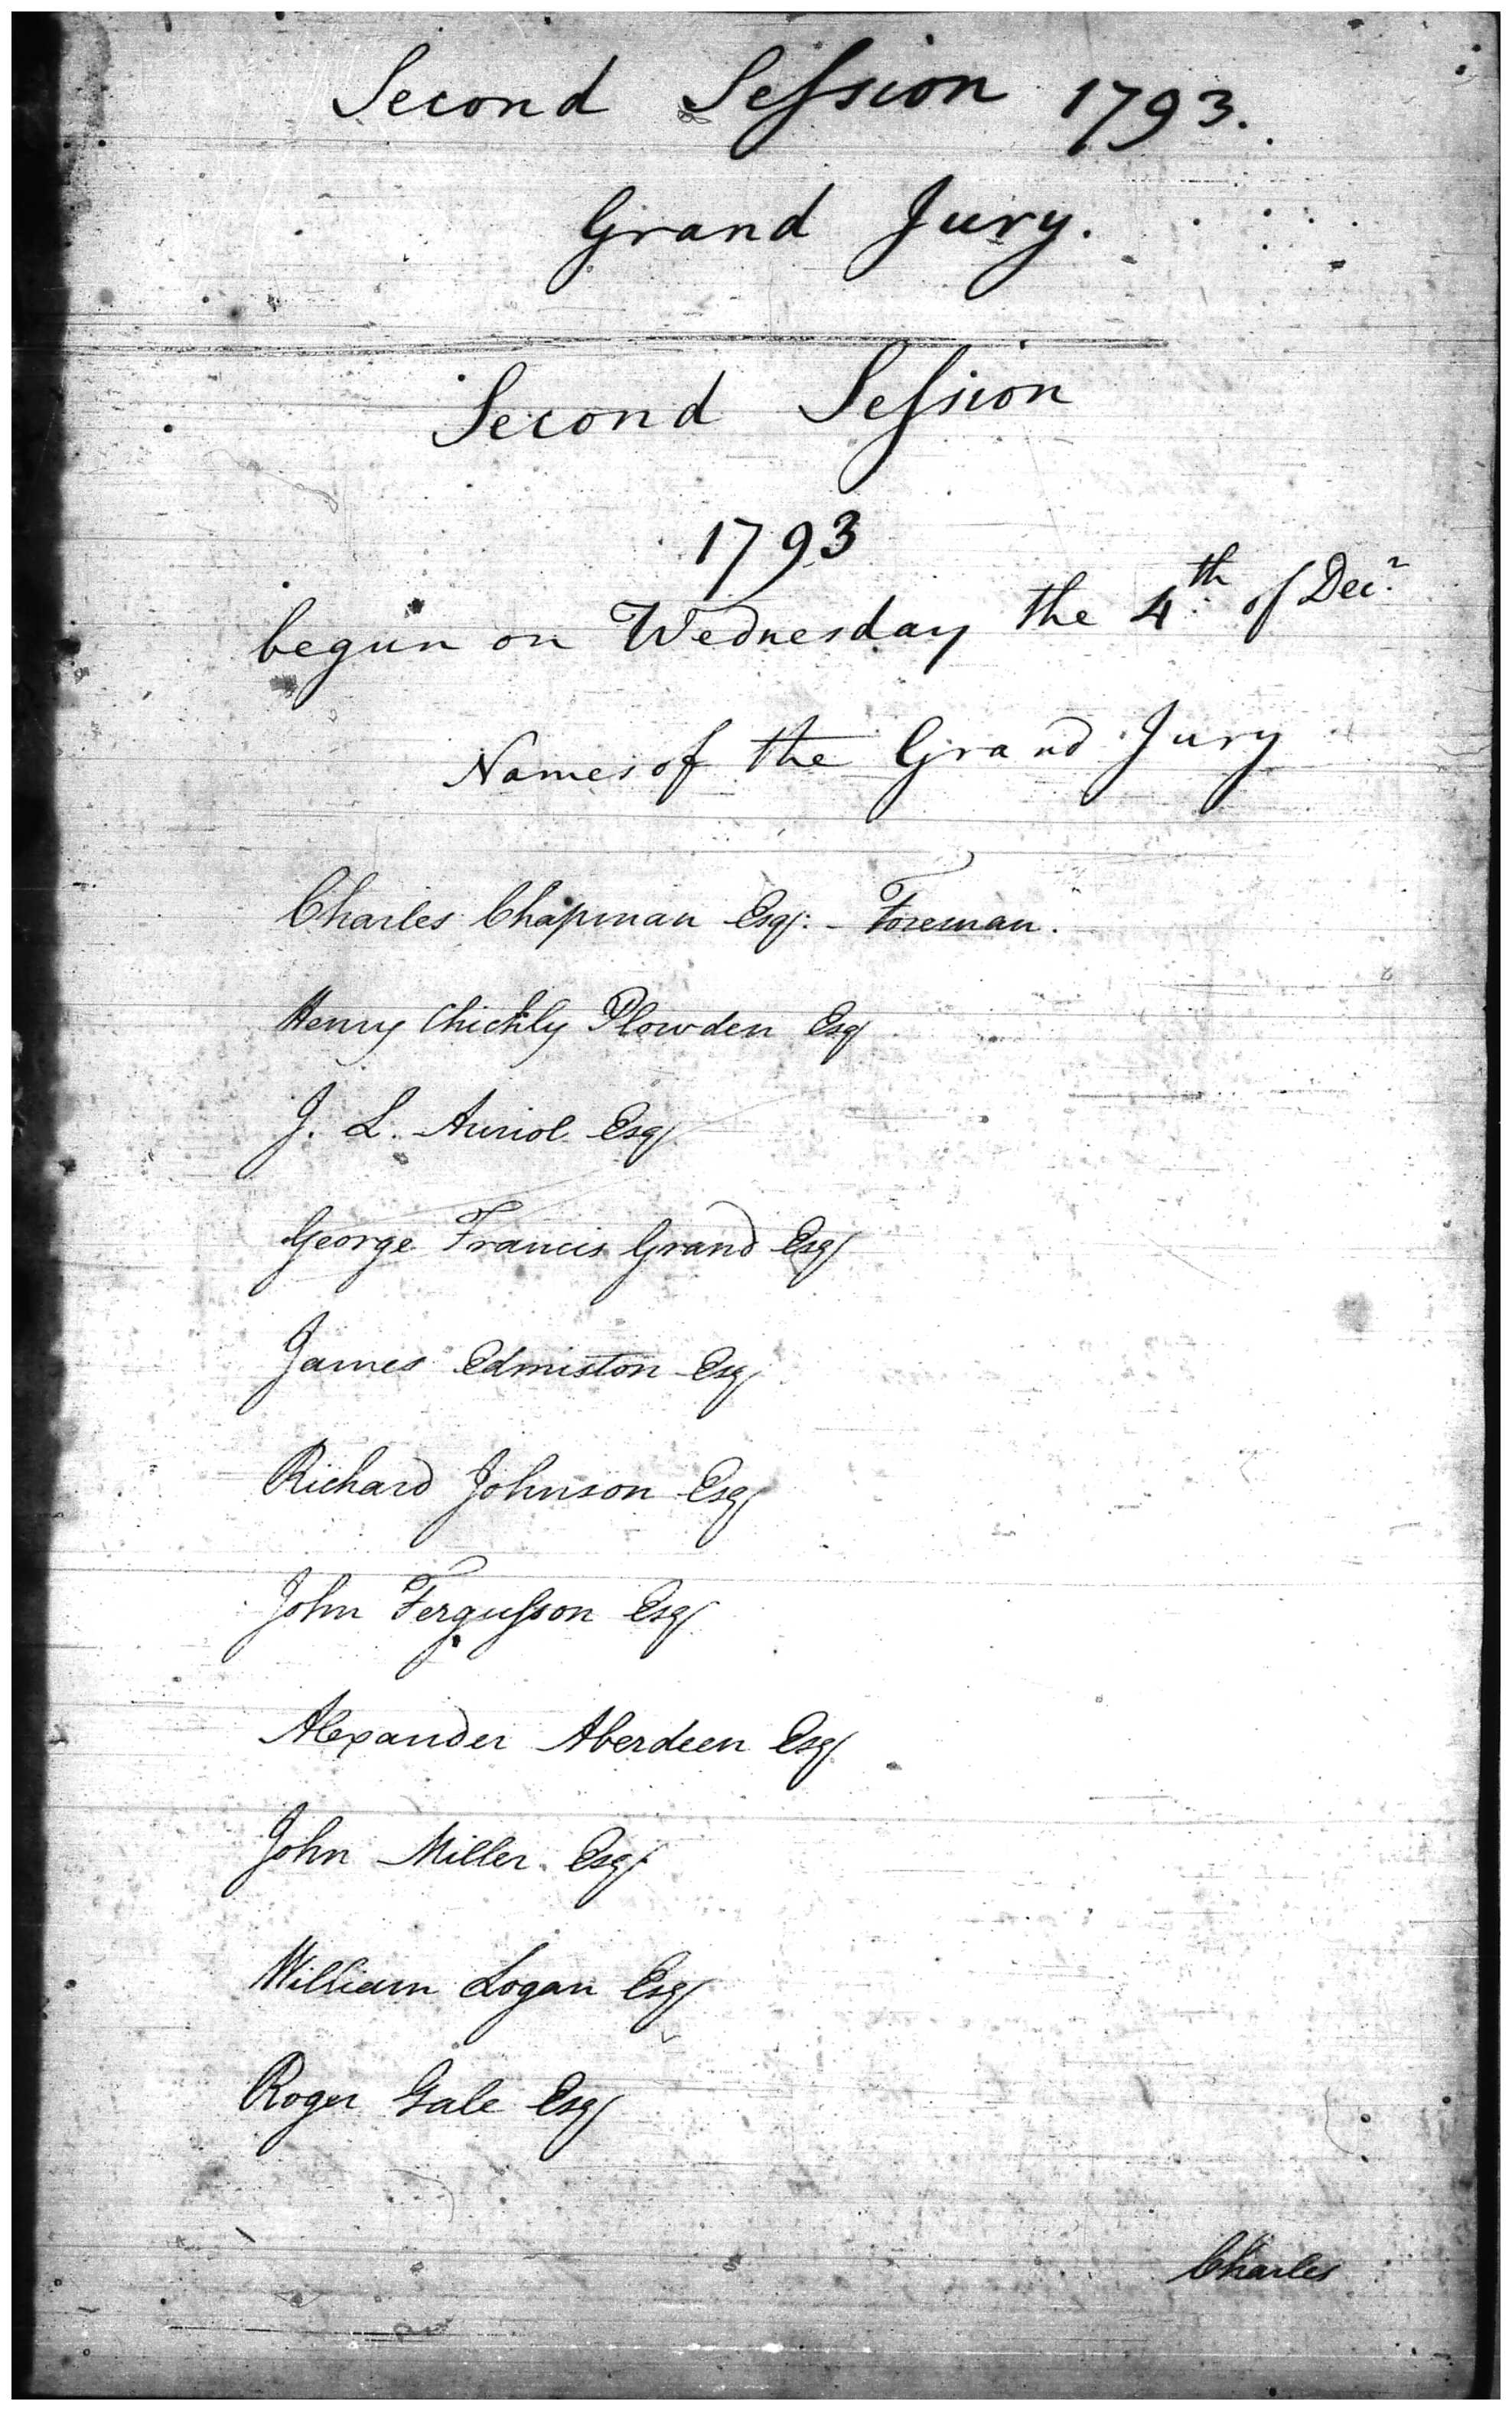 Second Session 1793.
Grand Jury.
Second Session
1793
begun on Wednesday the 4th of Decr
Names of the Grand Jury
Charles Chapman Esqr. - Foreman.
Henry Chichly Plowden Esqr
J. L. Auriol Esqr
George Francis Grand Esqr
James Edmiston Esqr
Richard Johnson Esqr
John Fergusson Esqr
Alexander Aberdeen Esqr
John Miller Esqr
William Logan Esqr
Roger Gale Esqr
Charles